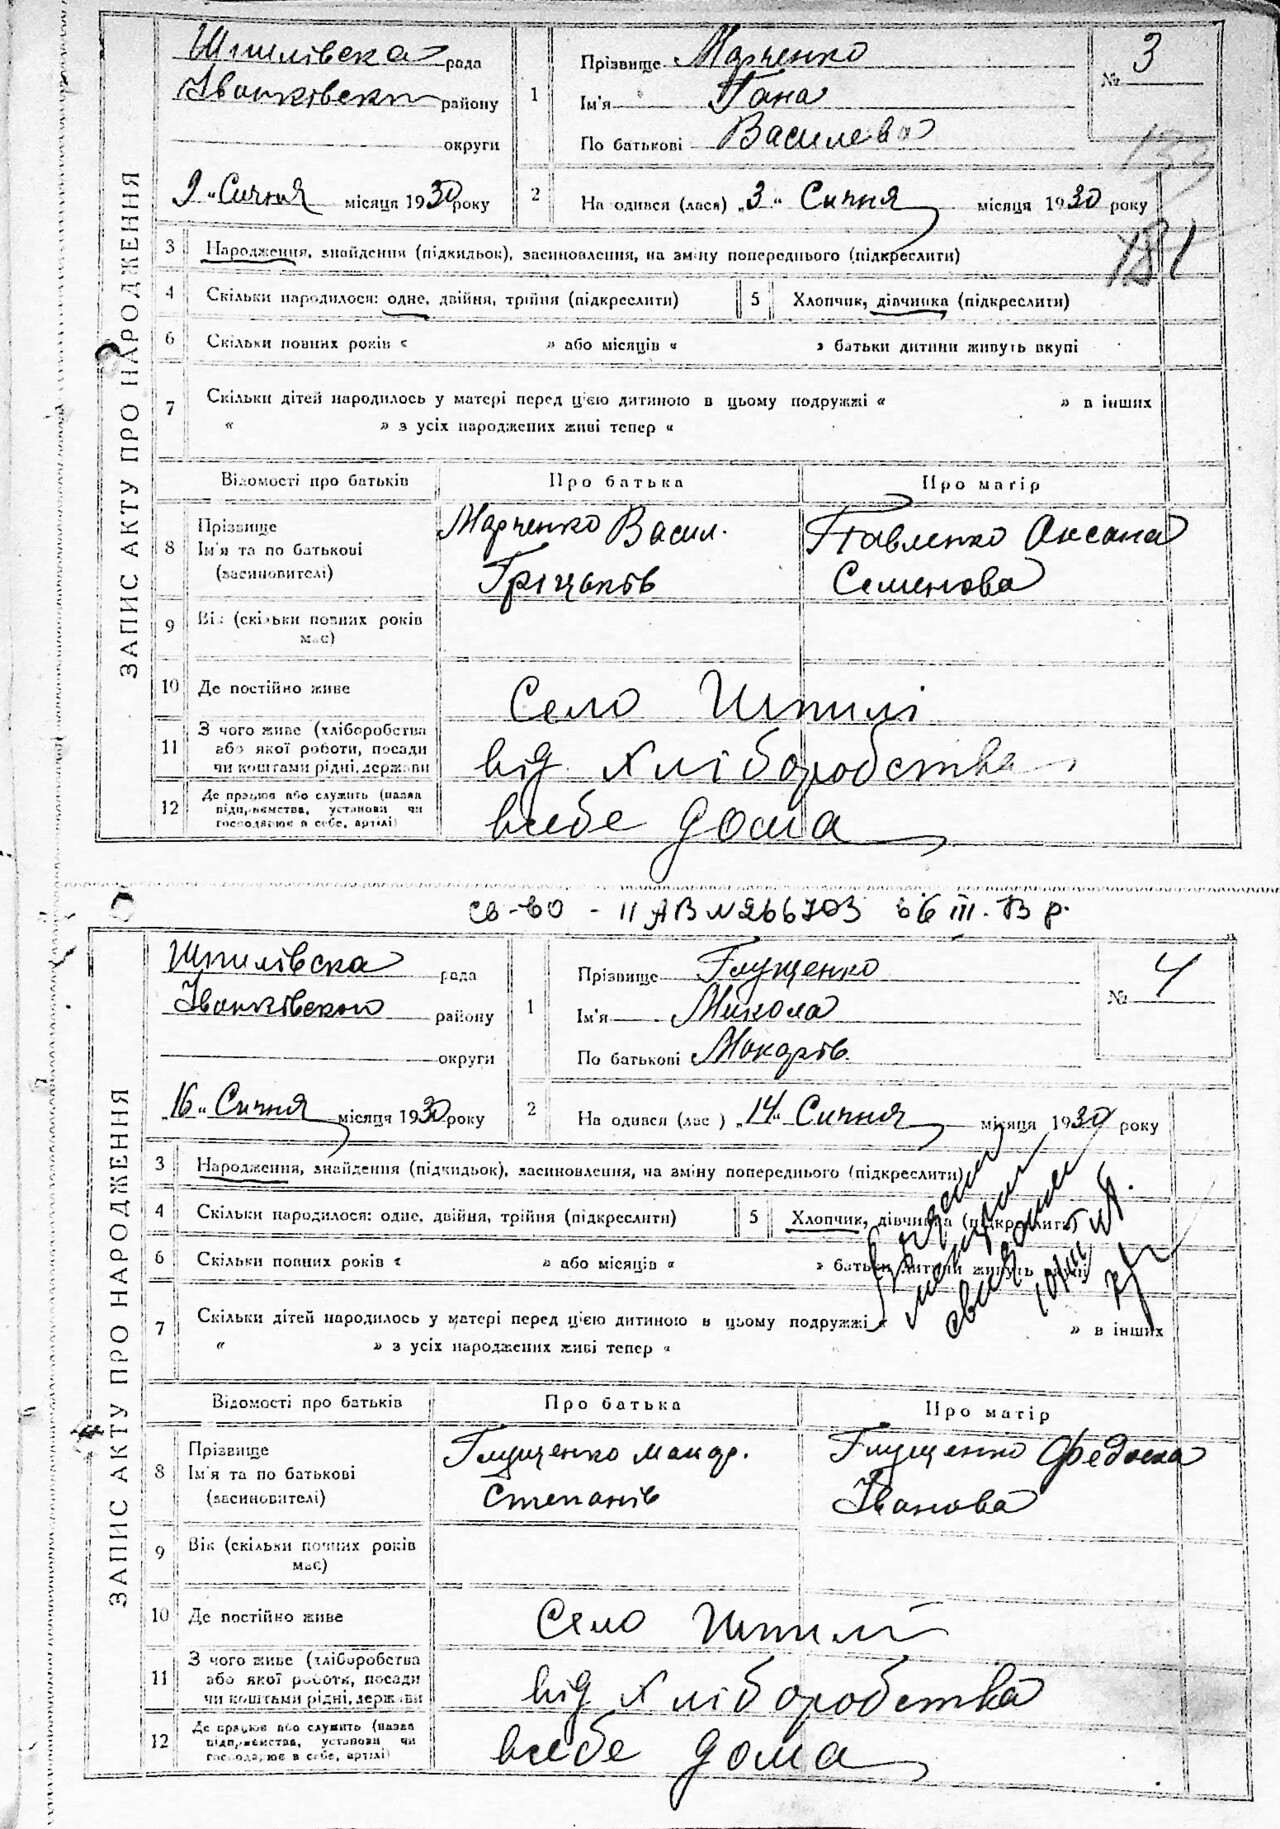 ЗАПИС АКТУ ПРО НАРОДЖЕННЯ
Шпилівска рада
Іванківского району
округи
9 „ Січня місяця 1930 року
1
Прізвище Марченко
Ім'я Гана
По батькові Василева
№ 3
181
2
На одився (лася) „3“ Січня місяця 1930 року
3 Народження, знайдення (підкидьок), засиновлення, на зміну попереднього (підкреслити)
4 Скільки народилося: одне, двійня, трійня (підкреслити)
5 Хлопчик, дівчинка (підкреслити)
6 Скільки повних років « » або місяців « » батьки дитини живуть вкупі
7 Скільки дітей народилось у матері перед цією дитиною в цьому подружжі « » в інших
« » з усіх народжених живі тепер «
Відомості про батьків Про батька Про матір
8 Прізвище
Ім'я та по батькові
(засиновителі)
Марченко Васил.
Гріцьків
Павленко Оксана
Семенова
9 Вік (скільки повних років
має)
10 Де постійно живе Село Шпилі
11 З чого живе (хліборобства
або якої роботи, посади
чи коштами рідні, держави
від хліборобства
12 Де працює або служить (назва
підприємства, установи чи
господарює в себе, артілі)
всебе дома
св-во - II АВ № 266703 в 6 III. 73 р.
ЗАПИС АКТУ ПРО НАРОДЖЕННЯ
Шпилівска рада
Іванківского району
округи
16 „ Січня місяця 1930 року
1
Прізвище Глущенко
Ім'я Микола
По батькові Макарів
№ 4
2
На одився (лас ) „14“ Січня місяця 1930 року
3 Народження, знайдення (підкидьок), засиновлення, на зміну попереднього (підкреслити)
4 Скільки народилося: одне, двійня, трійня (підкреслити)
5 Хлопчик, дівчинка (підкреслити)
6 Скільки повних років « » або місяців « » батьки дитини живуть
7 Скільки дітей народилось у матері перед цією дитиною в цьому подружжі « » в інших
« » з усіх народжених живі тепер «
Відомості про батьків Про батька Про матір
8 Прізвище
Ім'я та по батькові
(засиновителі)
Глущенко Макар.
Степанів
Глущенко Федоска
Іванова
9 Вік (скільки повних років
має)
10 Де постійно живе Село Шпилі
11 З чого живе (хліборобства
або якої роботи, посади
чи коштами рідні, держави
від хліборобства
12 Де працює або служить (назва
підприємства, установи чи
господарює в себе, артілі)
всебе дома